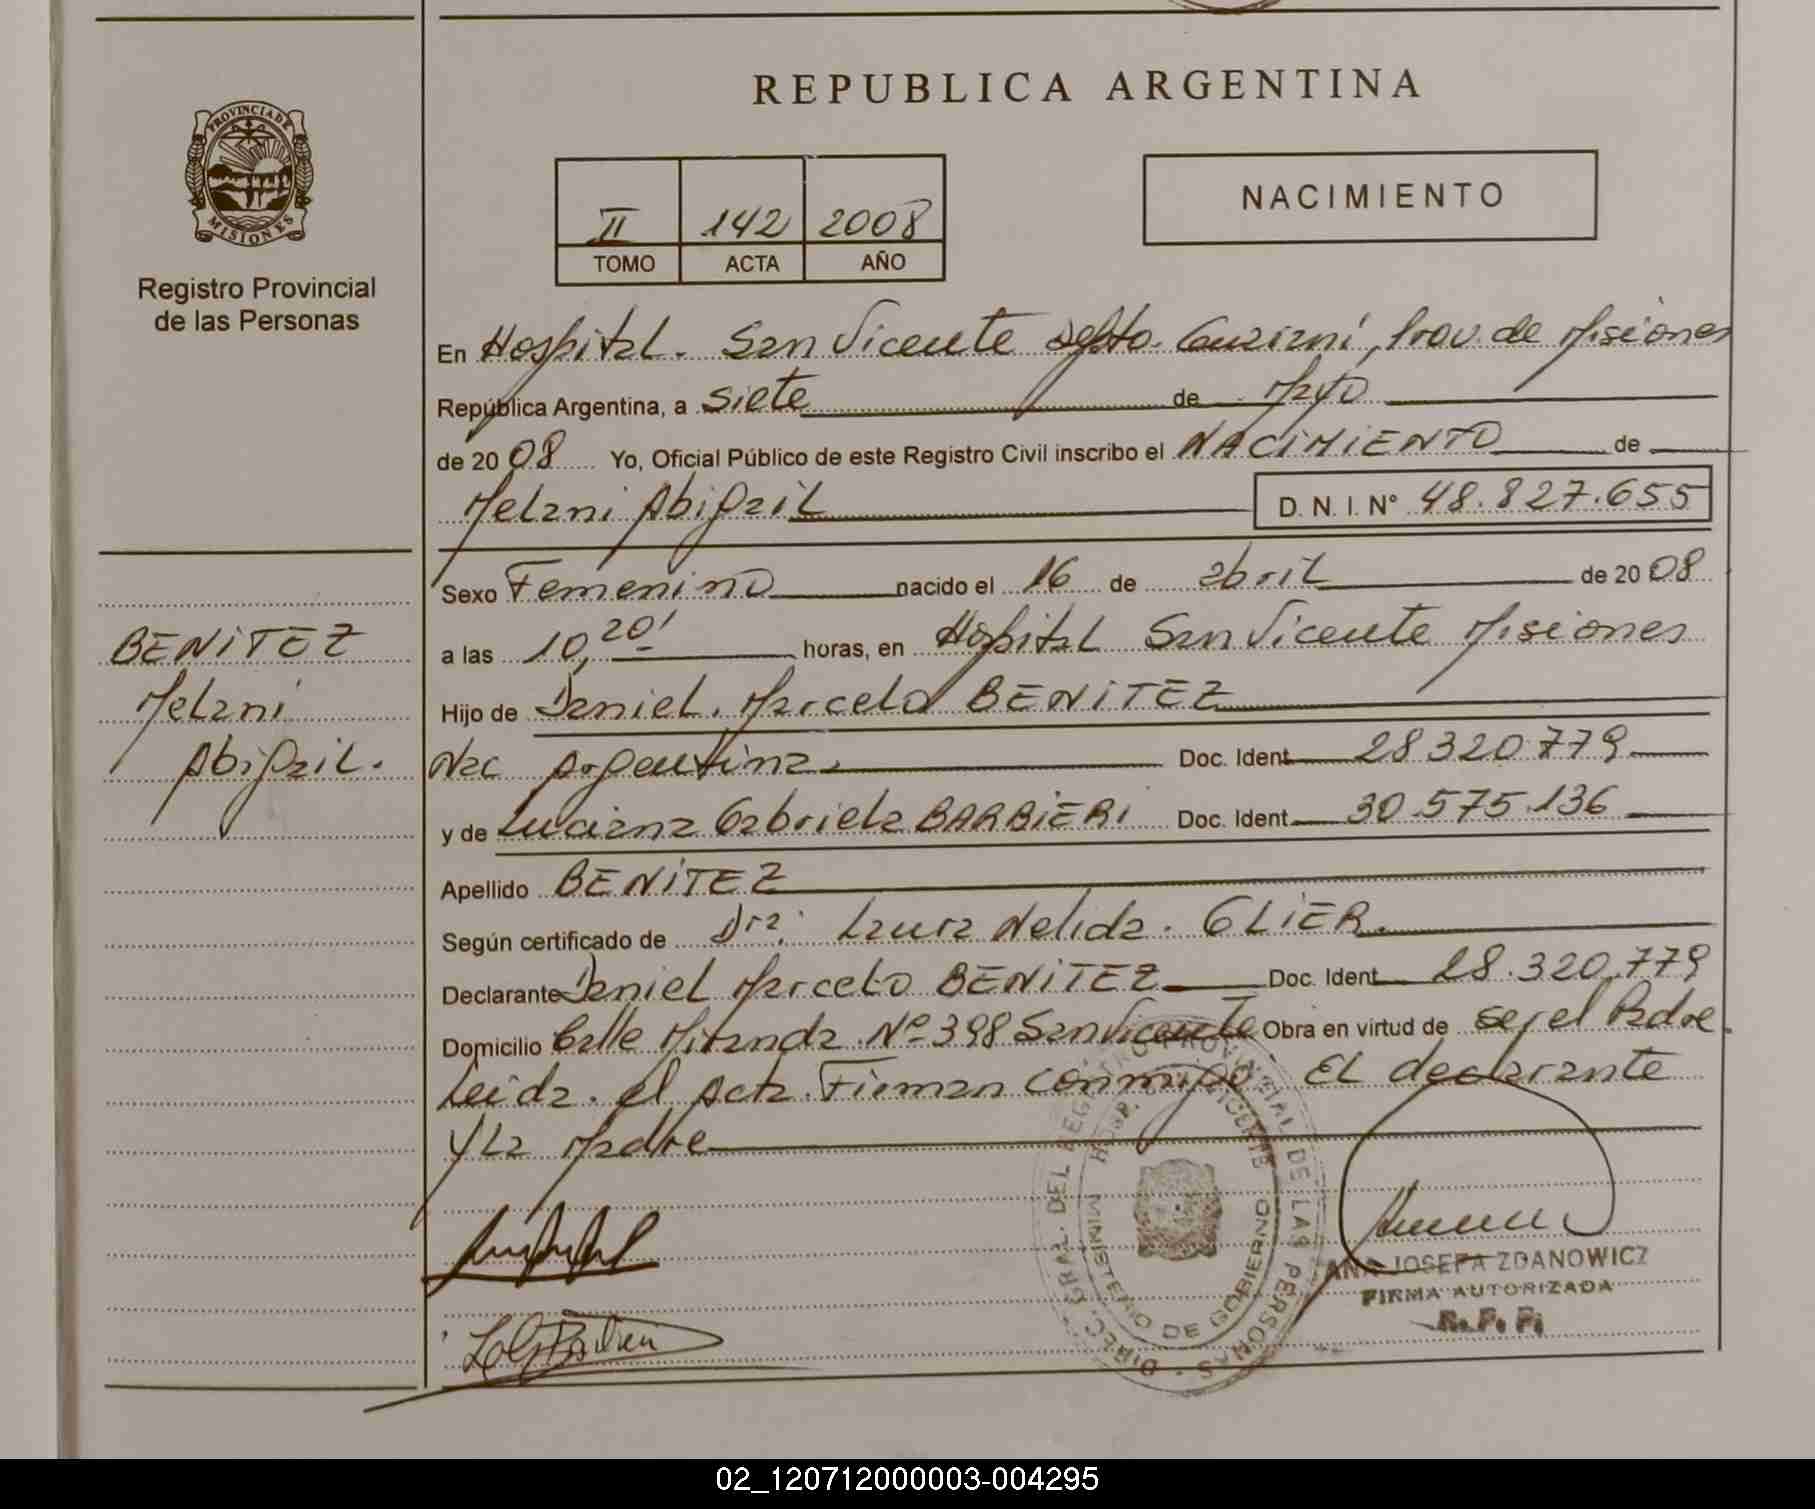 REPUBLICA ARGENTINA
PROVINCIA DE
MISIONES
Registro Provincial
de las Personas
II 142 2008
TOMO ACTA AÑO
NACIMIENTO
En Hospital. San Vicente depto. Guaraní, Prov. de Misiones
República Argentina, a siete de Mayo
de 2008 Yo, Oficial Público de este Registro Civil inscribo el NACIMIENTO de
Melani Abigail D. N. I. N° 48.827.655
Sexo Femenino nacido el 16 de abril de 2008
a las 10,20' horas, en Hospital San Vicente Misiones
Hijo de Daniel. Marcelo BENITEZ
Nac Argentina. Doc. Ident. 28320.779
y de Luciana Gabriela BARBIERI Doc. Ident. 30.575.136
Apellido BENITEZ
Según certificado de Dra. Laura Nelida. GLIER.
Declarante Daniel Marcelo BENITEZ Doc. Ident. 28.320.779
Domicilio Calle Miranda Nº 398 San Vicente Obra en virtud de ser el Padre.
Leida. el Acta. Firman conmigo El declarante
y La Madre
BENITEZ
Melani
Abigail.
DIREC. GRAL. DEL REGISTRO PROVINCIAL DE LAS PERSONAS
HOSP. SAN VICENTE
MINISTERIO DE GOBIERNO
ANA JOSEFA ZDANOWICZ
FIRMA AUTORIZADA
R. P. P.
02_120712000003-004295